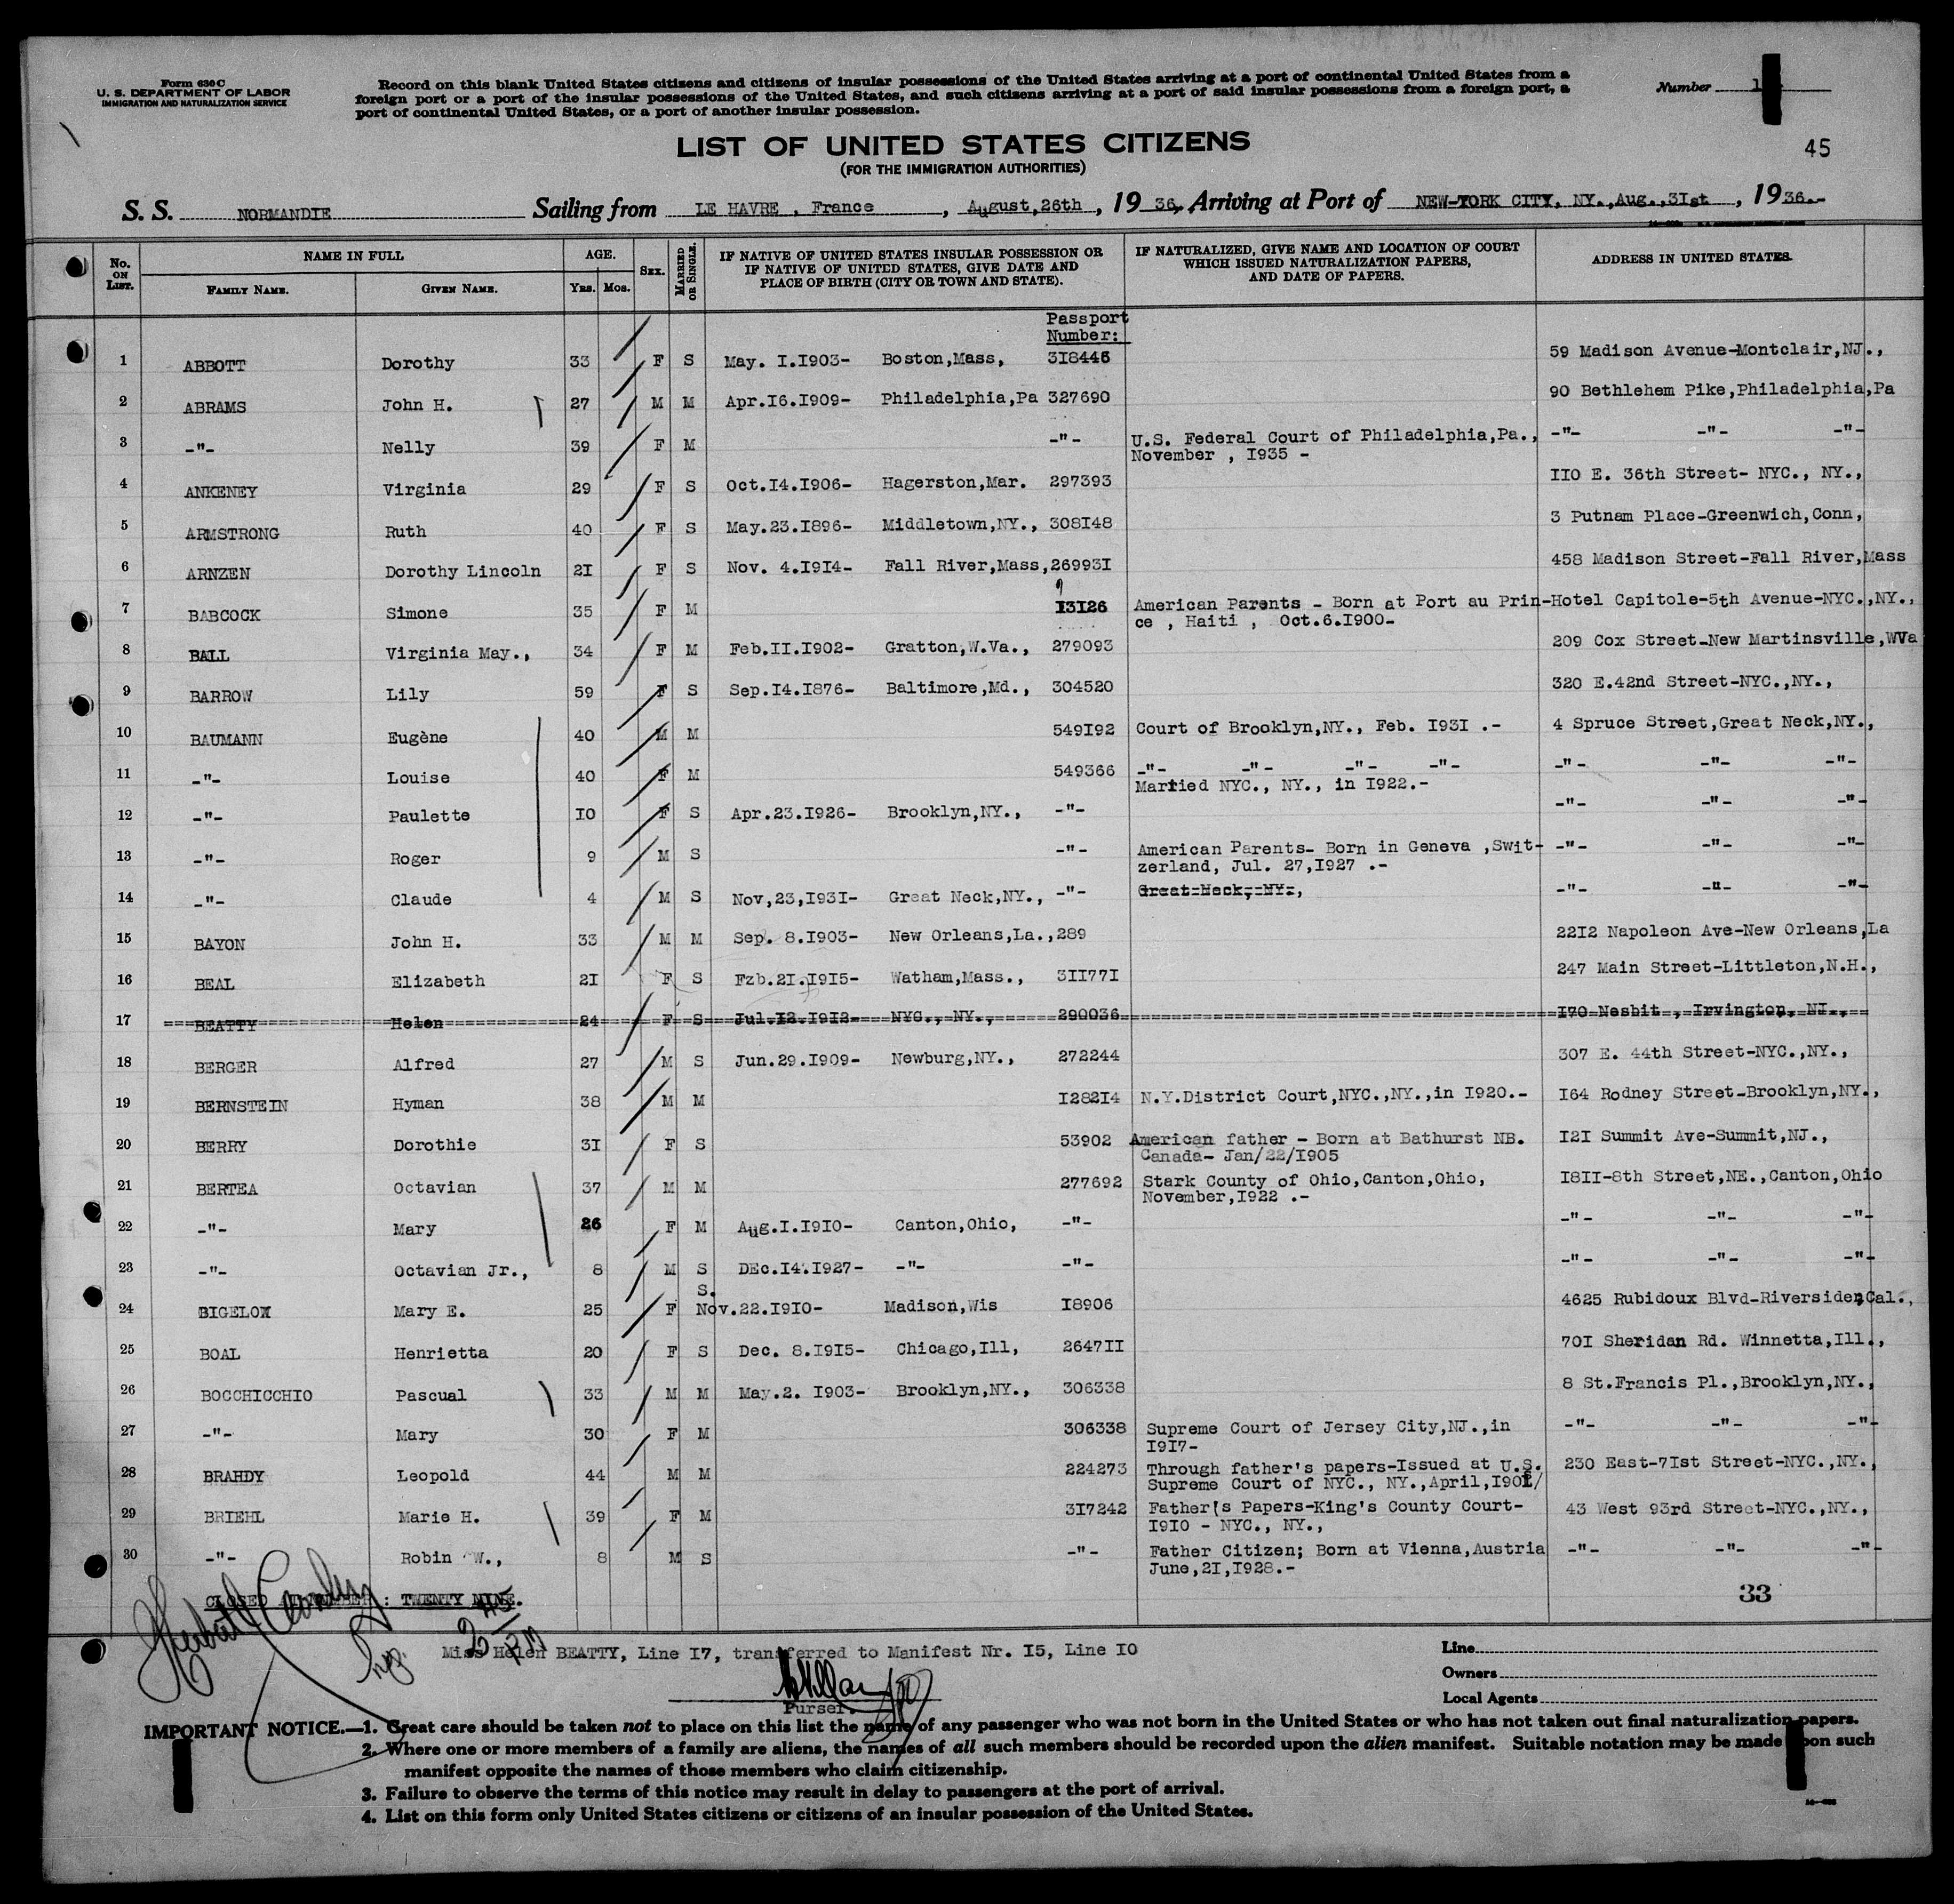 Form 630 C
U. S. DEPARTMENT OF LABOR
IMMIGRATION AND NATURALIZATION SERVICE
Record on this blank United States citizens and citizens of insular possessions of the United States arriving at a port of continental United States from a
foreign port or a port of the insular possessions of the United States, and such citizens arriving at a port of said insular possessions from a foreign port, a
port of continental United States, or a port of another insular possession.
Number 1
45
LIST OF UNITED STATES CITIZENS
(FOR THE IMMIGRATION AUTHORITIES)
S. S. NORMANDIE Sailing from LE HAVRE , France , August,26th , 19 36, Arriving at Port of NEW-YORK CITY, NY.,Aug.,3Ist , 19 36.-
No. ON LIST. NAME IN FULL FAMILY NAME. GIVEN NAME. AGE. YRS. MOS. SEX. MARRIED OR SINGLE. IF NATIVE OF UNITED STATES INSULAR POSSESSION OR IF NATIVE OF UNITED STATES, GIVE DATE AND PLACE OF BIRTH (CITY OR TOWN AND STATE). IF NATURALIZED, GIVE NAME AND LOCATION OF COURT WHICH ISSUED NATURALIZATION PAPERS, AND DATE OF PAPERS. ADDRESS IN UNITED STATES.
Passport
Number:
1 ABBOTT Dorothy 33 F S May. I.I903- Boston,Mass, 3I8446 59 Madison Avenue-Montclair,NJ.,
2 ABRAMS John H. 27 M M Apr.I6.I909- Philadelphia,Pa 327690 90 Bethlehem Pike,Philadelphia,Pa
3 -"- Nelly 39 F M -"- U.S. Federal Court of Philadelphia,Pa., -"- -"- -"-
November , I935 -
4 ANKENEY Virginia 29 F S Oct.I4.I906- Hagerston,Mar. 297393 IIO E. 36th Street- NYC., NY.,
5 ARMSTRONG Ruth 40 F S May.23.I896- Middletown,NY., 308I48 3 Putnam Place-Greenwich,Conn,
6 ARNZEN Dorothy Lincoln 2I F S Nov. 4.I9I4- Fall River,Mass,26993I 458 Madison Street-Fall River,Mass
7 BABCOCK Simone 35 F M I3I26 American Parents - Born at Port au Prin- Hotel Capitole-5th Avenue-NYC.,NY.,
ce , Haiti , Oct.6.I900-
8 BALL Virginia May., 34 F M Feb.II.I902- Gratton,W.Va., 279093 209 Cox Street-New Martinsville,WVa
9 BARROW Lily 59 F S Sep.I4.I876- Baltimore,Md., 304520 320 E.42nd Street-NYC.,NY.,
10 BAUMANN Eugène 40 M M 549I92 Court of Brooklyn,NY., Feb. I93I .- 4 Spruce Street,Great Neck,NY.,
11 -"- Louise 40 F M 549366 -"- -"- -"- -"- -"- -"- -"-
Married NYC., NY., in I922.-
12 -"- Paulette IO F S Apr.23.I926- Brooklyn,NY., -"- -"- -"- -"-
13 -"- Roger 9 M S -"- American Parents- Born in Geneva ,Swit- -"- -"- -"-
zerland, Jul. 27,I927 .-
14 -"- Claude 4 M S Nov,23,I93I- Great Neck,NY., -"- Great Neck, NY., -"- -"- -"-
15 BAYON John H. 33 M M Sep. 8.I903- New Orleans,La.,289 22I2 Napoleon Ave-New Orleans,La
16 BEAL Elizabeth 2I F S Fzb.2I.I9I5- Watham,Mass., 3II77I 247 Main Street-Littleton,N.H.,
17 BEATTY Helen 24 F S Jul.I2.I9I2- NYC., NY., 290036 I70 Nesbit , Irvington, NI.,
18 BERGER Alfred 27 M S Jun.29.I909- Newburg,NY., 272244 307 E. 44th Street-NYC.,NY.,
19 BERNSTEIN Hyman 38 M M I282I4 N.Y.District Court,NYC.,NY.,in I920.- I64 Rodney Street-Brooklyn,NY.,
20 BERRY Dorothie 3I F S 53902 American father - Born at Bathurst NB. I2I Summit Ave-Summit,NJ.,
Canada- Jan/22/I905
21 BERTEA Octavian 37 M M 277692 Stark County of Ohio,Canton,Ohio, I8II-8th Street,NE.,Canton,Ohio
November,I922 .-
22 -"- Mary 26 F M Aug.I.I9I0- Canton,Ohio, -"- -"- -"- -"-
23 -"- Octavian Jr., 8 M S DEc.I4.I927- -"- -"- -"- -"- -"-
24 BIGELOW Mary E. 25 F S. Nov.22.I9I0- Madison,Wis I8906 4625 Rubidoux Blvd-Riverside,Cal.,
25 BOAL Henrietta 20 F S Dec. 8.I9I5- Chicago,Ill, 2647II 70I Sheridan Rd. Winnetta,Ill.,
26 BOCCHICCHIO Pascual 33 M M May.2. I903- Brooklyn,NY., 306338 8 St.Francis Pl.,Brooklyn,NY.,
27 -"- Mary 30 F M 306338 Supreme Court of Jersey City,NJ.,in -"- -"- -"-
I9I7-
28 BRAHDY Leopold 44 M M 224273 Through father's papers-Issued at U.S. 230 East-7Ist Street-NYC.,NY.,
Supreme Court of NYC., NY.,April,190I/
29 BRIEHL Marie H. 39 F M 3I7242 Father's Papers-King's County Court- 43 West 93rd Street-NYC.,NY.,
I9I0 - NYC., NY.,
30 -"- Robin W., 8 M S -"- Father Citizen; Born at Vienna,Austria -"- -"- -"-
June,2I,I928.-
CLOSED AT NUMBER : TWENTY NINE.
33
Miss Helen BEATTY, Line I7, transferred to Manifest Nr. I5, Line IO
Purser.
Line
Owners
Local Agents
IMPORTANT NOTICE.—1. Great care should be taken not to place on this list the name of any passenger who was not born in the United States or who has not taken out final naturalization papers.
2. Where one or more members of a family are aliens, the names of all such members should be recorded upon the alien manifest. Suitable notation may be made upon such
manifest opposite the names of those members who claim citizenship.
3. Failure to observe the terms of this notice may result in delay to passengers at the port of arrival.
4. List on this form only United States citizens or citizens of an insular possession of the United States.